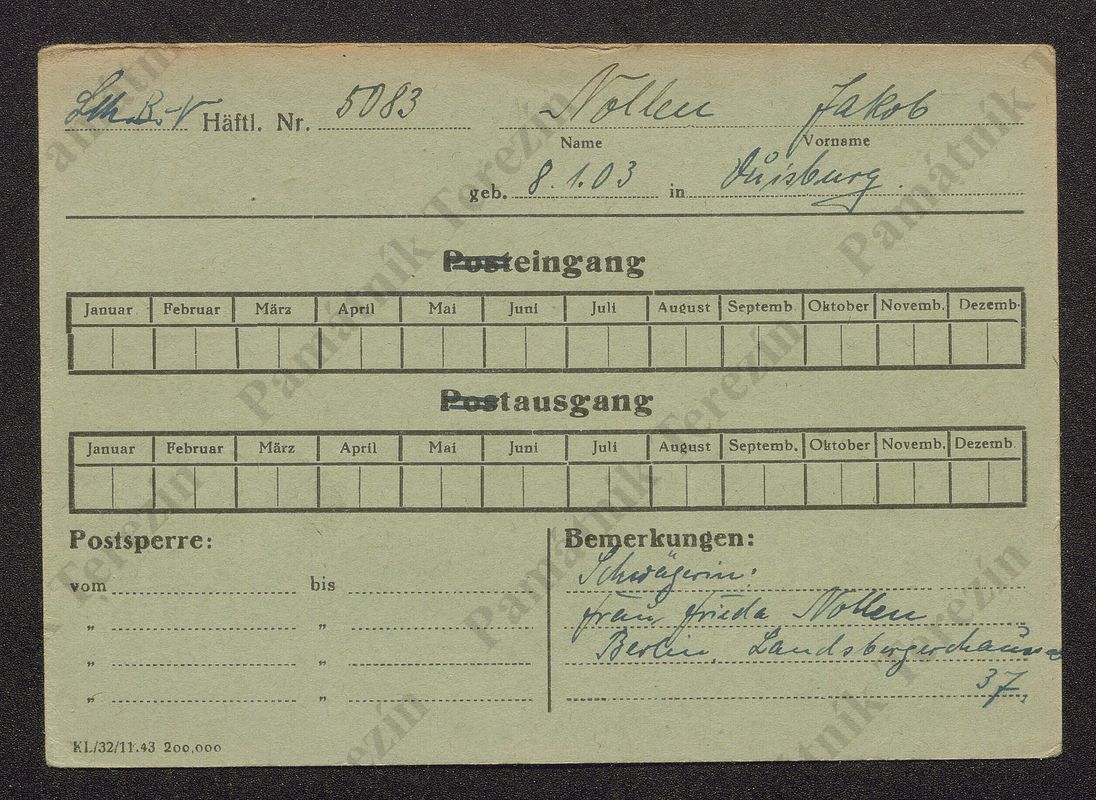 Häftl. Nr. 5083 Nollen Jakob
Name Vorname
geb. 8.1.03 in Duisburg.
Posteingang
Januar Februar März April Mai Juni Juli August Septemb. Oktober Novemb. Dezemb.
Postausgang
Januar Februar März April Mai Juni Juli August Septemb. Oktober Novemb. Dezemb.
Postsperre: Bemerkungen:
Schwägerin:
vom bis
Frau Frieda Nollen
" "
Berlin, Landsberger
" "
37,
" "
KL/32/11.43 200,000
Památník Terezín